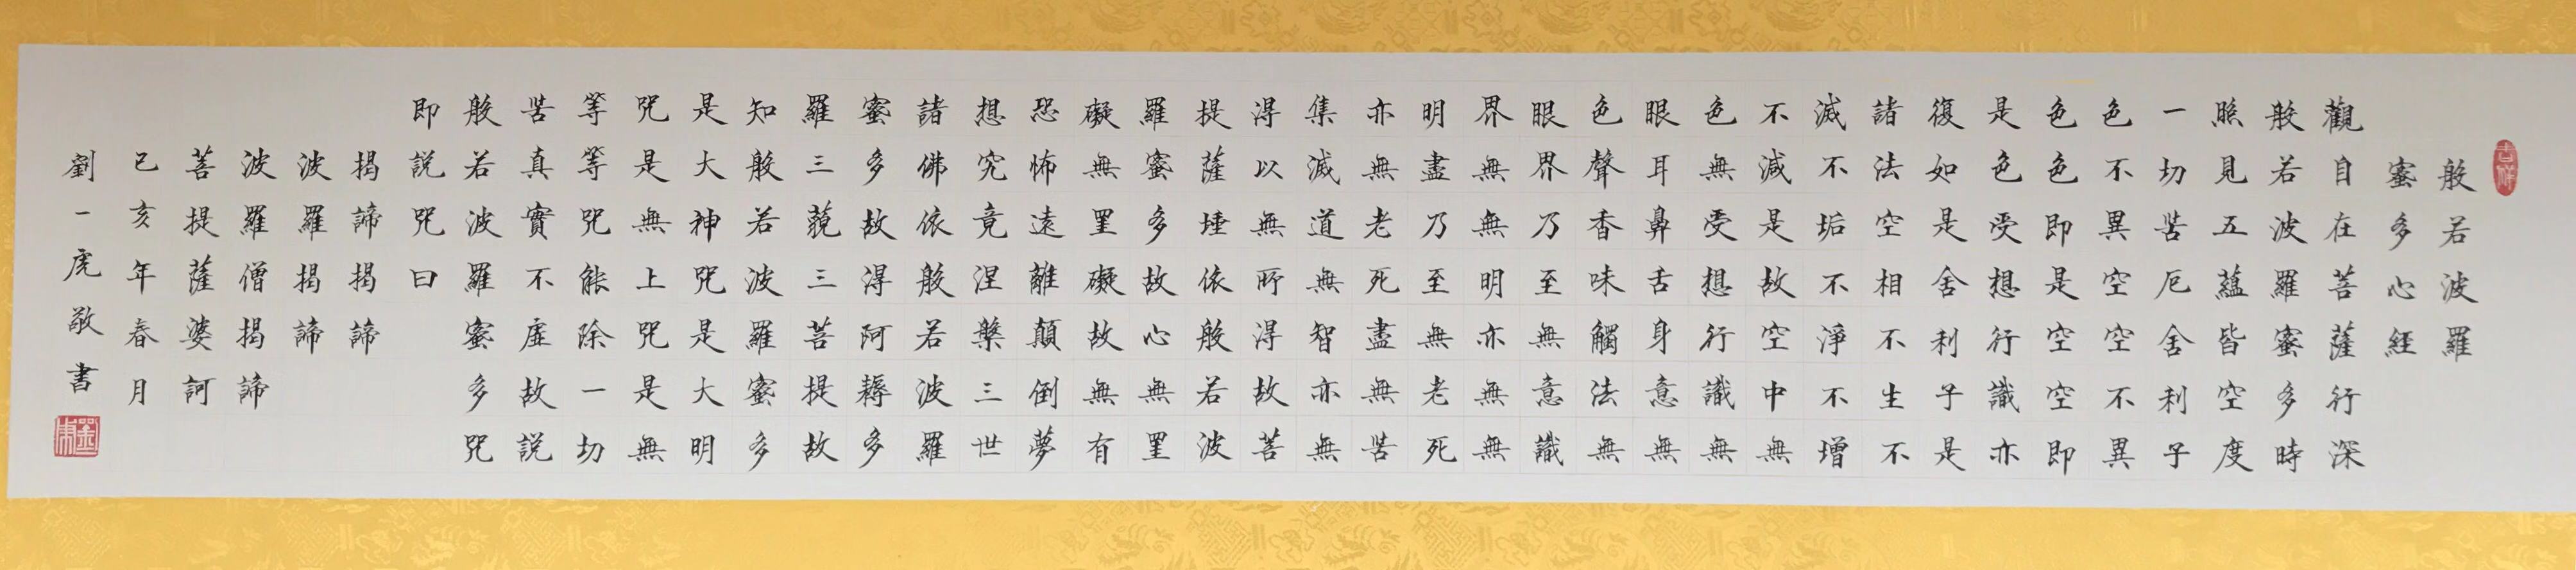 吉祥
般若波羅
蜜多心經
觀自在菩薩行深
般若波羅蜜多時
照見五蘊皆空度
一切苦厄舍利子
色不異空空不異
色色即是空空即
是色受想行識亦
復如是舍利子是
諸法空相不生不
滅不垢不淨不增
不減是故空中無
色無受想行識無
眼耳鼻舌身意無
色聲香味觸法無
眼界乃至無意識
界無無明亦無無
明盡乃至無老死
亦無老死盡無苦
集滅道無智亦無
得以無所得故菩
提薩埵依般若波
羅蜜多故心無罣
礙無罣礙故無有
恐怖遠離顛倒夢
想究竟涅槃三世
諸佛依般若波羅
蜜多故得阿耨多
羅三藐三菩提故
知般若波羅蜜多
是大神咒是大明
咒是無上咒是無
等等咒能除一切
苦真實不虛故説
般若波羅蜜多咒
即説咒曰
揭諦揭諦
波羅揭諦
波羅僧揭諦
菩提薩婆訶
己亥年春月
劉一虎敬書